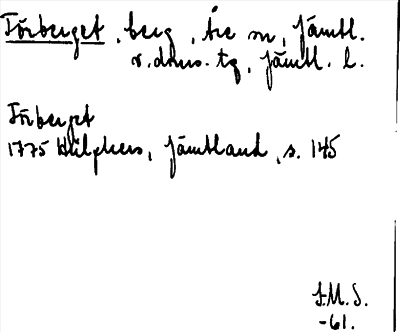 Förberget, berg, Åre sn, Jämtl.
v. dms. tg, Jämtl. l.
Förberget
1775 Hülphers, Jämtland, s. 145
I.M.S.
-61.